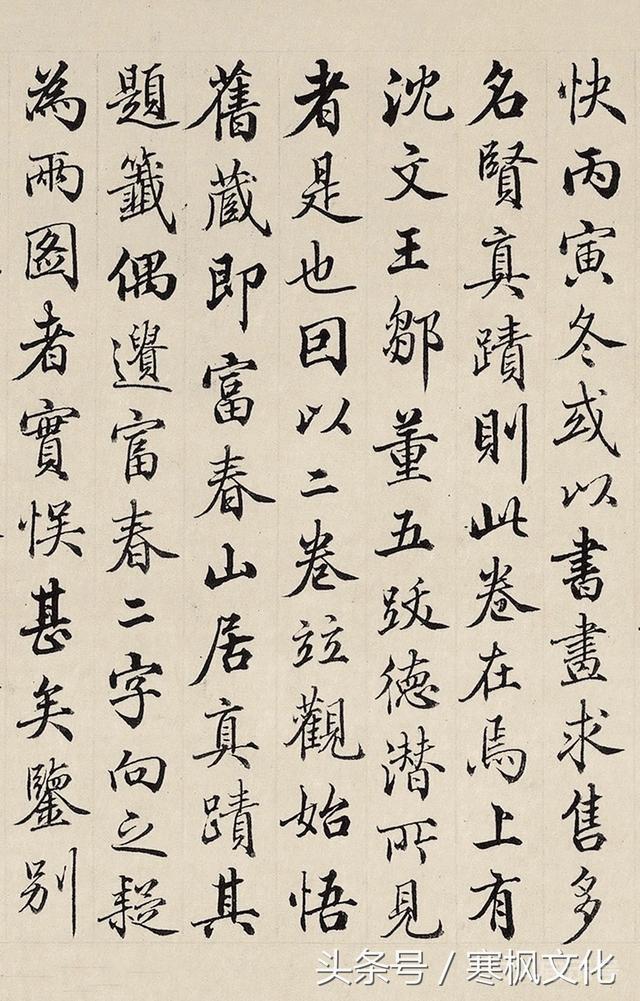 快丙寅冬或以書畫求售多
名賢真蹟則此卷在焉上有
沈文王鄒董五跋德潛所見
者是也因以二卷竝觀始悟
舊蔵即富春山居真蹟其
題籤偶遺富春二字向之疑
為兩圖者實悮甚矣鑒别
头条号 / 寒枫文化